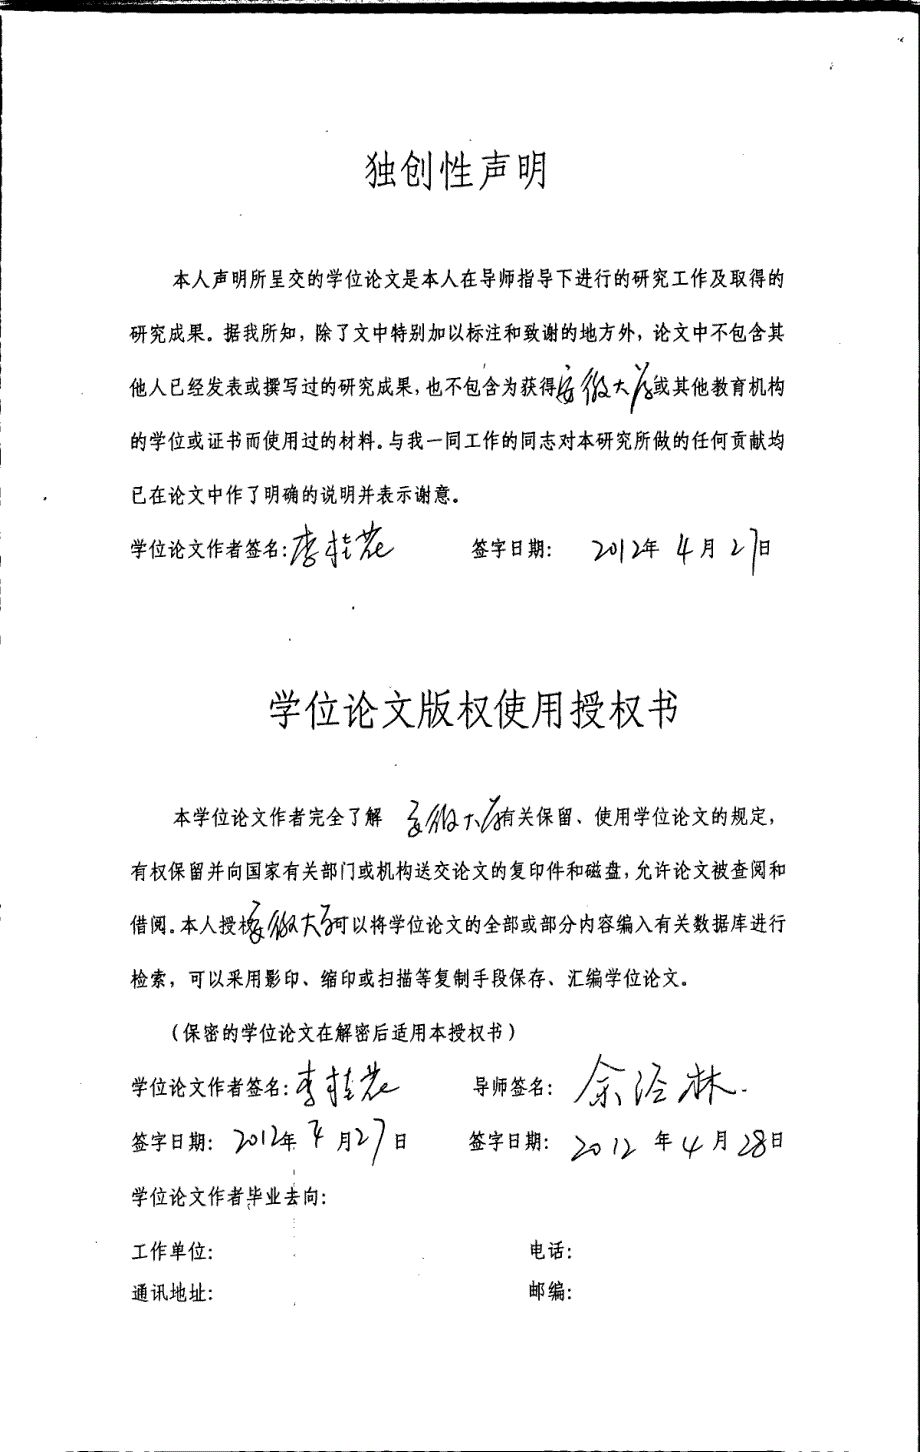 独创性声明
本人声明所呈交的学位论文是本人在导师指导下进行的研究工作及取得的
研究成果。据我所知，除了文中特别加以标注和致谢的地方外，论文中不包含其
他人已经发表或撰写过的研究成果，也不包含为获得安徽大学或其他教育机构
的学位或证书而使用过的材料。与我一同工作的同志对本研究所做的任何贡献均
已在论文中作了明确的说明并表示谢意。
学位论文作者签名：李桂花 签字日期： 2012年 4月27日
学位论文版权使用授权书
本学位论文作者完全了解 安徽大学有关保留、使用学位论文的规定，
有权保留并向国家有关部门或机构送交论文的复印件和磁盘，允许论文被查阅和
借阅。本人授权安徽大学可以将学位论文的全部或部分内容编入有关数据库进行
检索，可以采用影印、缩印或扫描等复制手段保存、汇编学位论文。
（保密的学位论文在解密后适用本授权书）
学位论文作者签名：李桂花 导师签名：余泾林
签字日期： 2012年4月27日 签字日期： 2012年4月28日
学位论文作者毕业去向：
工作单位： 电话：
通讯地址： 邮编：